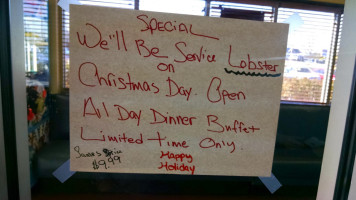 SPECIAL
We'll Be Service Lobster
on
Christmas Day. Open
All Day Dinner Buffet
Limited Time Only
Happy
Holiday
$9.99